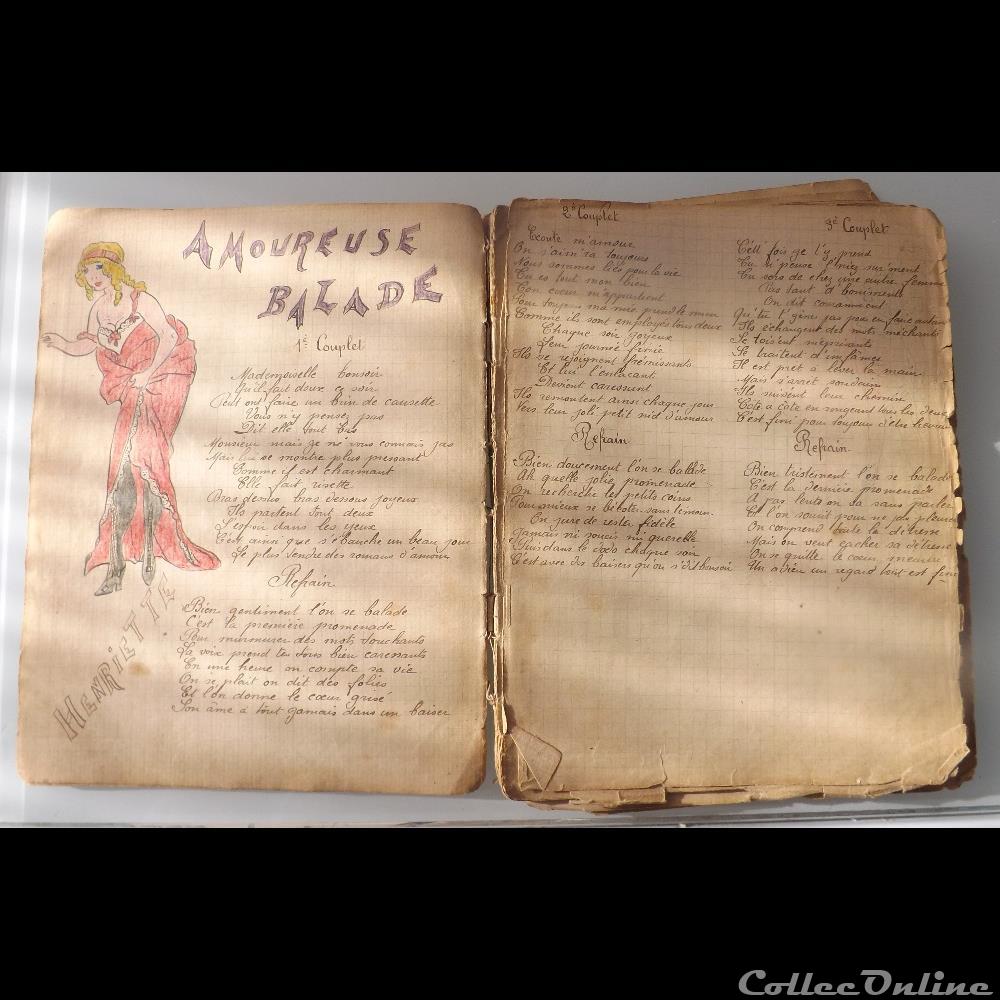 AMOUREUSE
BALADE
1e Couplet
Mademoiselle bonsoir
Qu'il fait doux ce soir
Peut on faire un brin de causette
Vous n'y pensez pas
Dit elle tout bas
Monsieur mais je ne vous connais pas
Mais lui se montre plus pressant
Comme il est charmant
Elle fait risette
Bras dessus bras dessous joyeux
Ils partent tout deux
L'espoir dans les yeux
C'est ainsi que s'ébauche un beau jour
Le plus tendre des romans d'amour
Refrain
Bien gentiment l'on se balade
C'est la première promenade
Pour murmurer des mots touchants
La voix prend des tons bien caressants
En une heure on compte sa vie
On se plait on dit des folies
Et l'on donne le cœur grisé
Son âme à tout jamais dans un baiser
HENRIETTE
2e Couplet
Ecoute m'amour
On s'aim'ra toujours
Nous sommes liés pour la vie
Tu es tout mon bien
Ton cœur m'appartient
Pour toujours ma mie prend le mien
Comme ils sont employés tous deux
Chaque soir joyeux
Leur journée finie
Ils se rejoignent frémissants
Et lui l'enlaçant
Devient caressant
Ils remontent ainsi chaque jour
Vers leur joli petit nid d'amour
Refrain
Bien doucement l'on se balade
Ah quelle jolie promenade
On recherche les petits coins
Pour mieux se bécoter sans témoin
On jure de rester fidèle
Jamais ni soucis ni querelle
Puis dans le dodo chaque soir
C'est avec des baisers qu'on s'dit bonsoir
3e Couplet
Cett' fois je t'y prend
Tu m'
Tu sors de chez une autre femme
Pas tant d'boniments
On dit couramment
Qu'tu t'gên's pas pou en faire autant
Ils échangent des mots méchants
Se
Se traitent d'infâmes
Il est prêt à lever la main
Mais s'arrêt' soudain
Ils suivent leur chemin
Côte à côte en songeant tous les deux
C'est fini pour toujours d'être heureux
Refrain
Bien tristement l'on se balade
C'est la dernière promenade
A pas lents on va sans parler
Et l'on sourit pour ne pas pleurer
On comprend toute la détresse
Mais on veut cacher sa détresse
On se quitte le cœur meurtri
Un adieu un regard tout est fini
CollecOnline